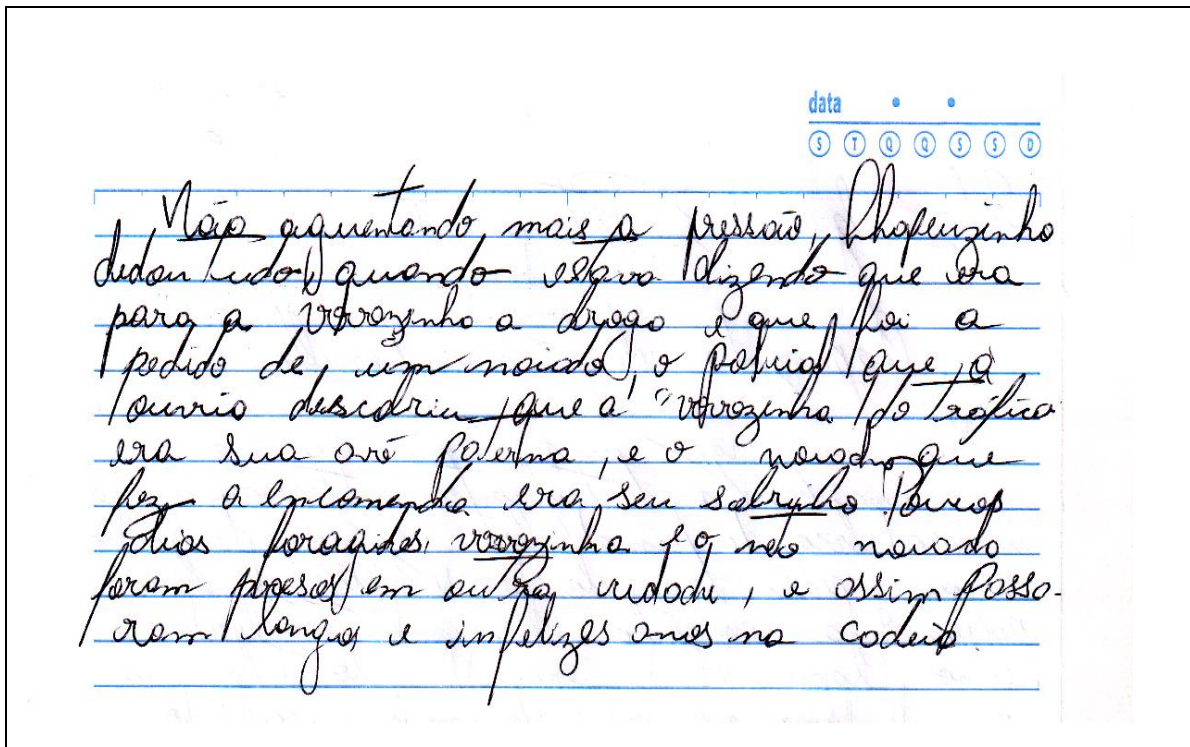 data
S T Q Q S S D
Não aguentando mais a pressão, Chapeuzinho
dedou tudo, quando estava dizendo que era
para a vovozinha a droga e que foi a
pedido de um noiado, o policial que a
ouvia descobriu que a "vovozinha do tráfico
era sua avó paterna, e o noiado que
fez a encomenda era seu sobrinho. Poucos
dias foragidos, vovozinha e o neto noiado
foram presos em outra cidade, e assim passa-
ram longos e infelizes anos na cadeia.